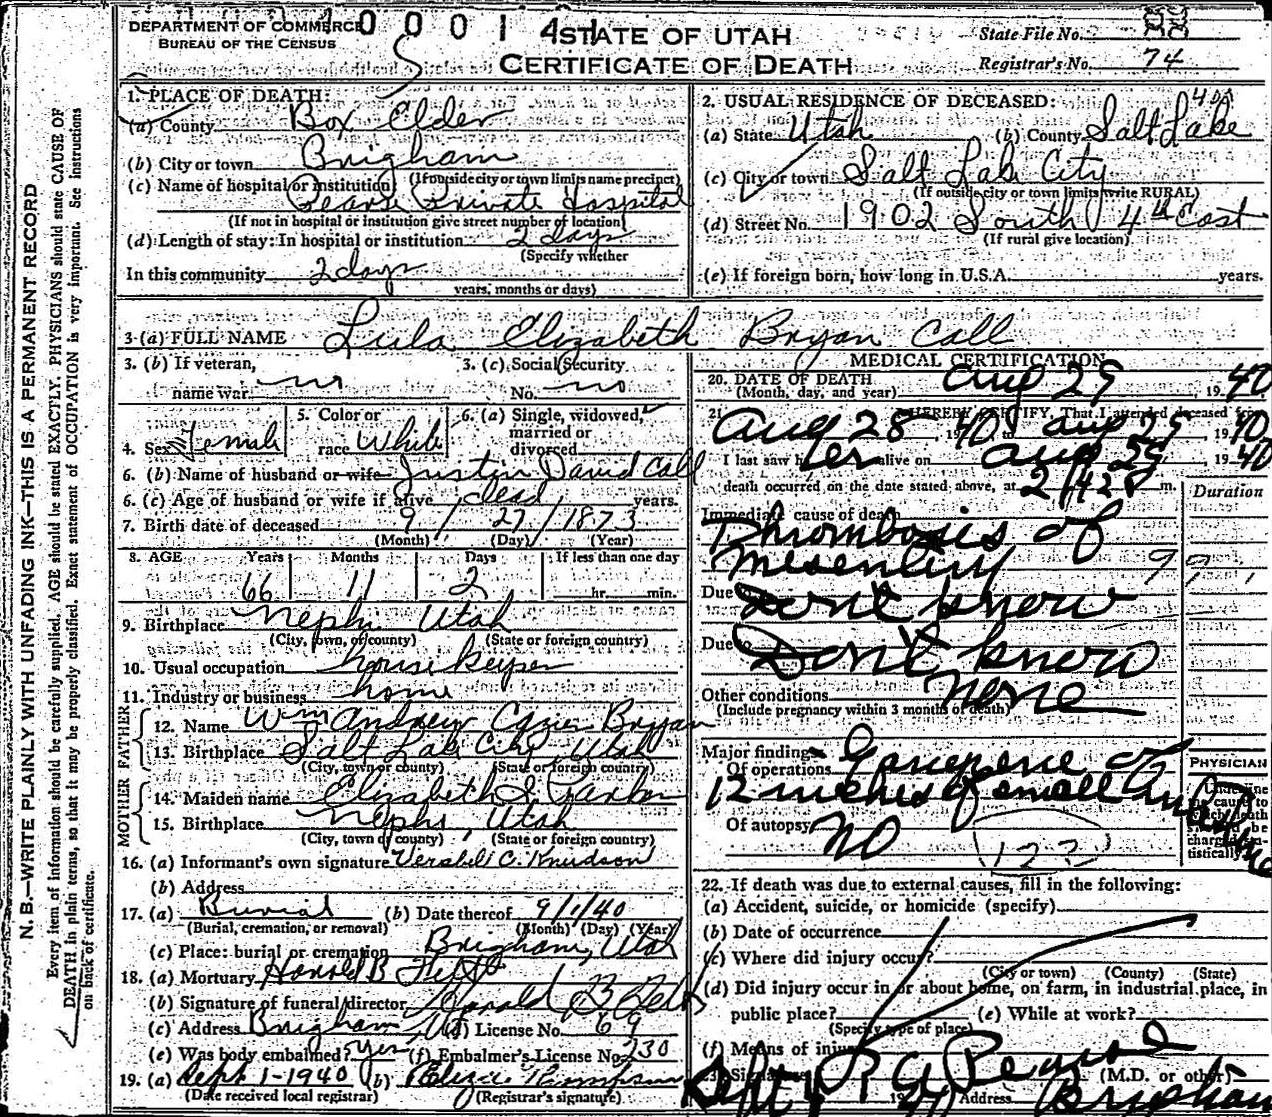 DEPARTMENT OF COMMERCE
BUREAU OF THE CENSUS
STATE OF UTAH
CERTIFICATE OF DEATH
State File No.
Registrar's No. 74
N. B.—WRITE PLAINLY WITH UNFADING INK—THIS IS A PERMANENT RECORD
Every item of information should be carefully supplied. AGE should be stated EXACTLY. PHYSICIANS should state CAUSE OF
DEATH in plain terms, so that it may be properly classified. Exact statement of OCCUPATION is very important. See instructions
on back of certificate.
1. PLACE OF DEATH:
(a) County Box Elder
(b) City or town Brigham
(If outside city or town limits name precinct)
(c) Name of hospital or institution
Pearse Private Hospital
(If not in hospital or institution give street number of location)
(d) Length of stay: In hospital or institution 2 days
(Specify whether
In this community 2 days
years, months or days)
2. USUAL RESIDENCE OF DECEASED:
(a) State Utah (b) County Salt Lake
(c) City or town Salt Lake City
(If outside city or town limits write RURAL)
(d) Street No. 1902 South 4th East
(If rural give location)
(e) If foreign born, how long in U.S.A. years.
3. (a) FULL NAME Lula Elizabeth Bryan Call
3. (b) If veteran,
name war no
3. (c) Social Security
No. no
4. Sex Female
5. Color or
race White
6. (a) Single, widowed,
married or
divorced
6. (b) Name of husband or wife Justin David Call
6. (c) Age of husband or wife if alive dead years.
7. Birth date of deceased 9 / 27 / 1873
(Month) (Day) (Year)
8. AGE Years Months Days If less than one day
66 11 2 hr. min.
9. Birthplace Nephi Utah
(City, town, or county) (State or foreign country)
10. Usual occupation house keyper
11. Industry or business home
FATHER
12. Name Wm Andrew Cozier Bryan
13. Birthplace Salt Lake City Utah
(City, town or county) (State or foreign country)
MOTHER
14. Maiden name Elizabeth
15. Birthplace Nephi, Utah
(City, town or county) (State or foreign country)
16. (a) Informant's own signature C. Knudson
(b) Address
17. (a) Burial (b) Date thereof 9/1/40
(Burial, cremation, or removal) (Month) (Day) (Year)
(c) Place: burial or cremation Brigham, Utah
18. (a) Mortuary Harold B Felt
(b) Signature of funeral director Harold B Felt
(c) Address Brigham, Ut (d) License No. 69
(e) Was body embalmed? yes (f) Embalmer's License No. 230
19. (a) Sept 1-1940 (b)
(Date received local registrar) (Registrar's signature)
MEDICAL CERTIFICATION
20. DATE OF DEATH Aug 29
(Month, day, and year) , 19 40
21. I HEREBY CERTIFY, That I attended deceased from
Aug 28, 1940 to Aug 29 19 40
I last saw her alive on Aug 29 19 40
death occurred on the date stated above, at m.
Duration
Immediate cause of death
Thrombosis of
Mesentery
Due to Don't know
Due to Don't know
Other conditions None
(Include pregnancy within 3 months of death)
Major findings
Of operations Gangrene of
12 inches of small intestine
Of autopsy NO
PHYSICIAN
Underline
the cause to
which death
should be
charged sta-
tistically
22. If death was due to external causes, fill in the following:
(a) Accident, suicide, or homicide (specify)
(b) Date of occurrence
(c) Where did injury occur?
(City or town) (County) (State)
(d) Did injury occur in or about home, on farm, in industrial place, in
public place? (e) While at work?
(Specify type of place)
(f) Means of injury
23. Signature R A Pearse (M.D. or other)
Sept 1940 Address Brigham